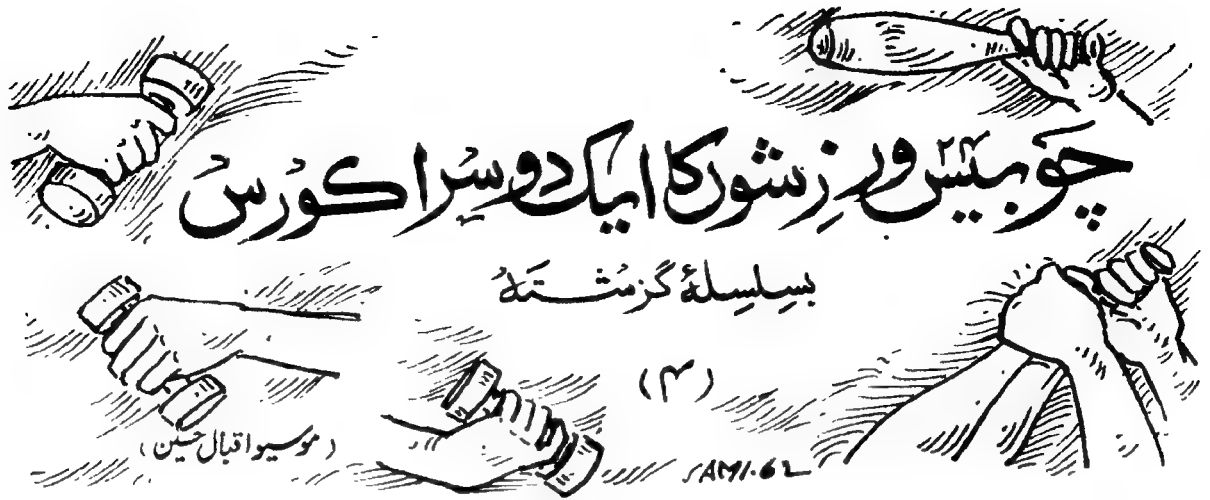 چوبیس ۲۴ ورزشوں کا ایک دوسرا کورس
بسلسلۂ گزشتہ
(۴)
(موسیو اقبال حسین)
SAMI.62